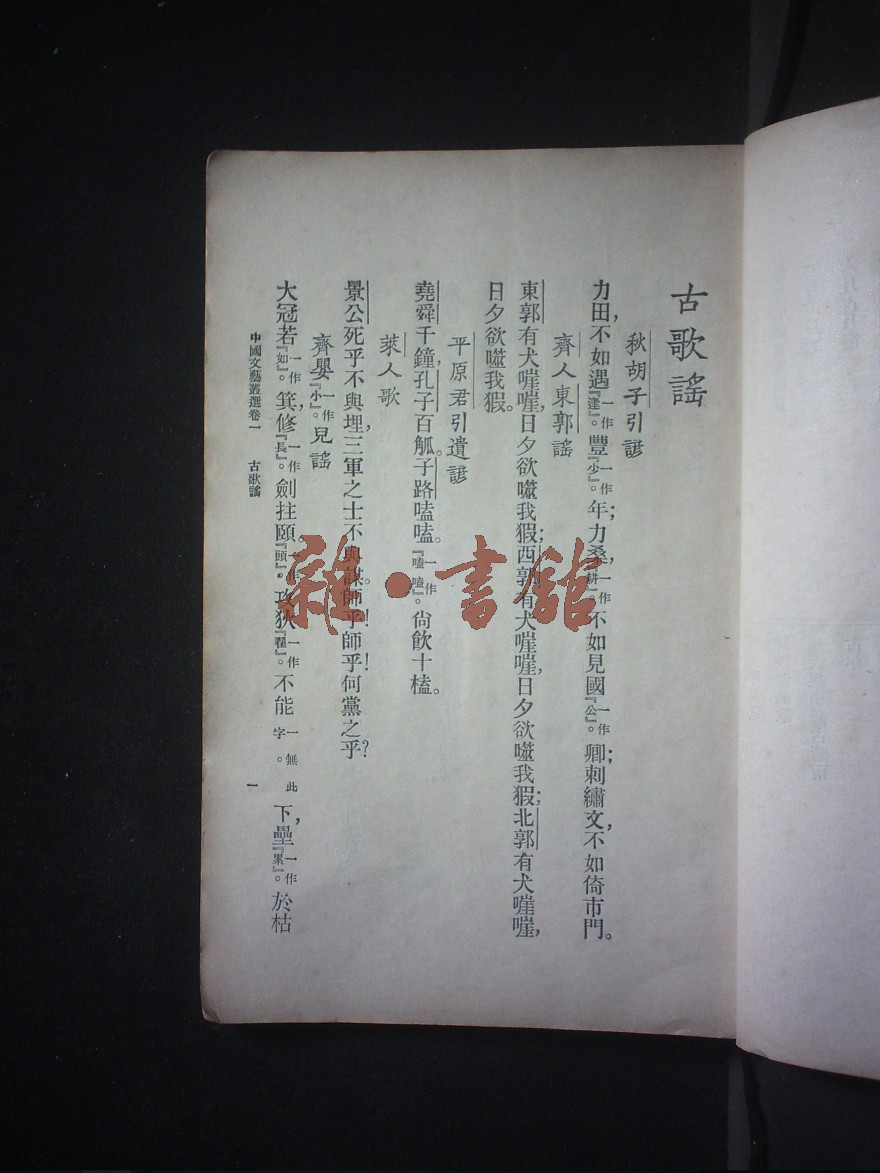 古歌謠
秋胡子引諺
力田,不如遇一作『逢』。豐一作『少』。年;力桑,一作『耕』。不如見國一作『公』。卿;刺繡文,不如倚市門。
齊人東郭謠
東郭有犬嘊嘊,日夕欲噬我猳;西郭有犬嘊嘊,日夕欲噬我猳;北郭有犬嘊嘊,
日夕欲噬我猳。
平原君引遺諺
堯舜千鐘,孔子百觚。子路嗑嗑。一作『嗑嗑』。尙飮十榼。
萊人歌
景公死乎不與埋,三軍之士不與謀。師乎!師乎!何黨之乎?
齊嬰一作『小』。兒謠
大冠若一作『如』。箕,修一作『長』。劍拄頤。一作『頭』。攻狄一作『翟』。不能一無此字。下,壘一作『累』。於枯
中國文藝叢選卷一 古歌謠 一
雜·書館